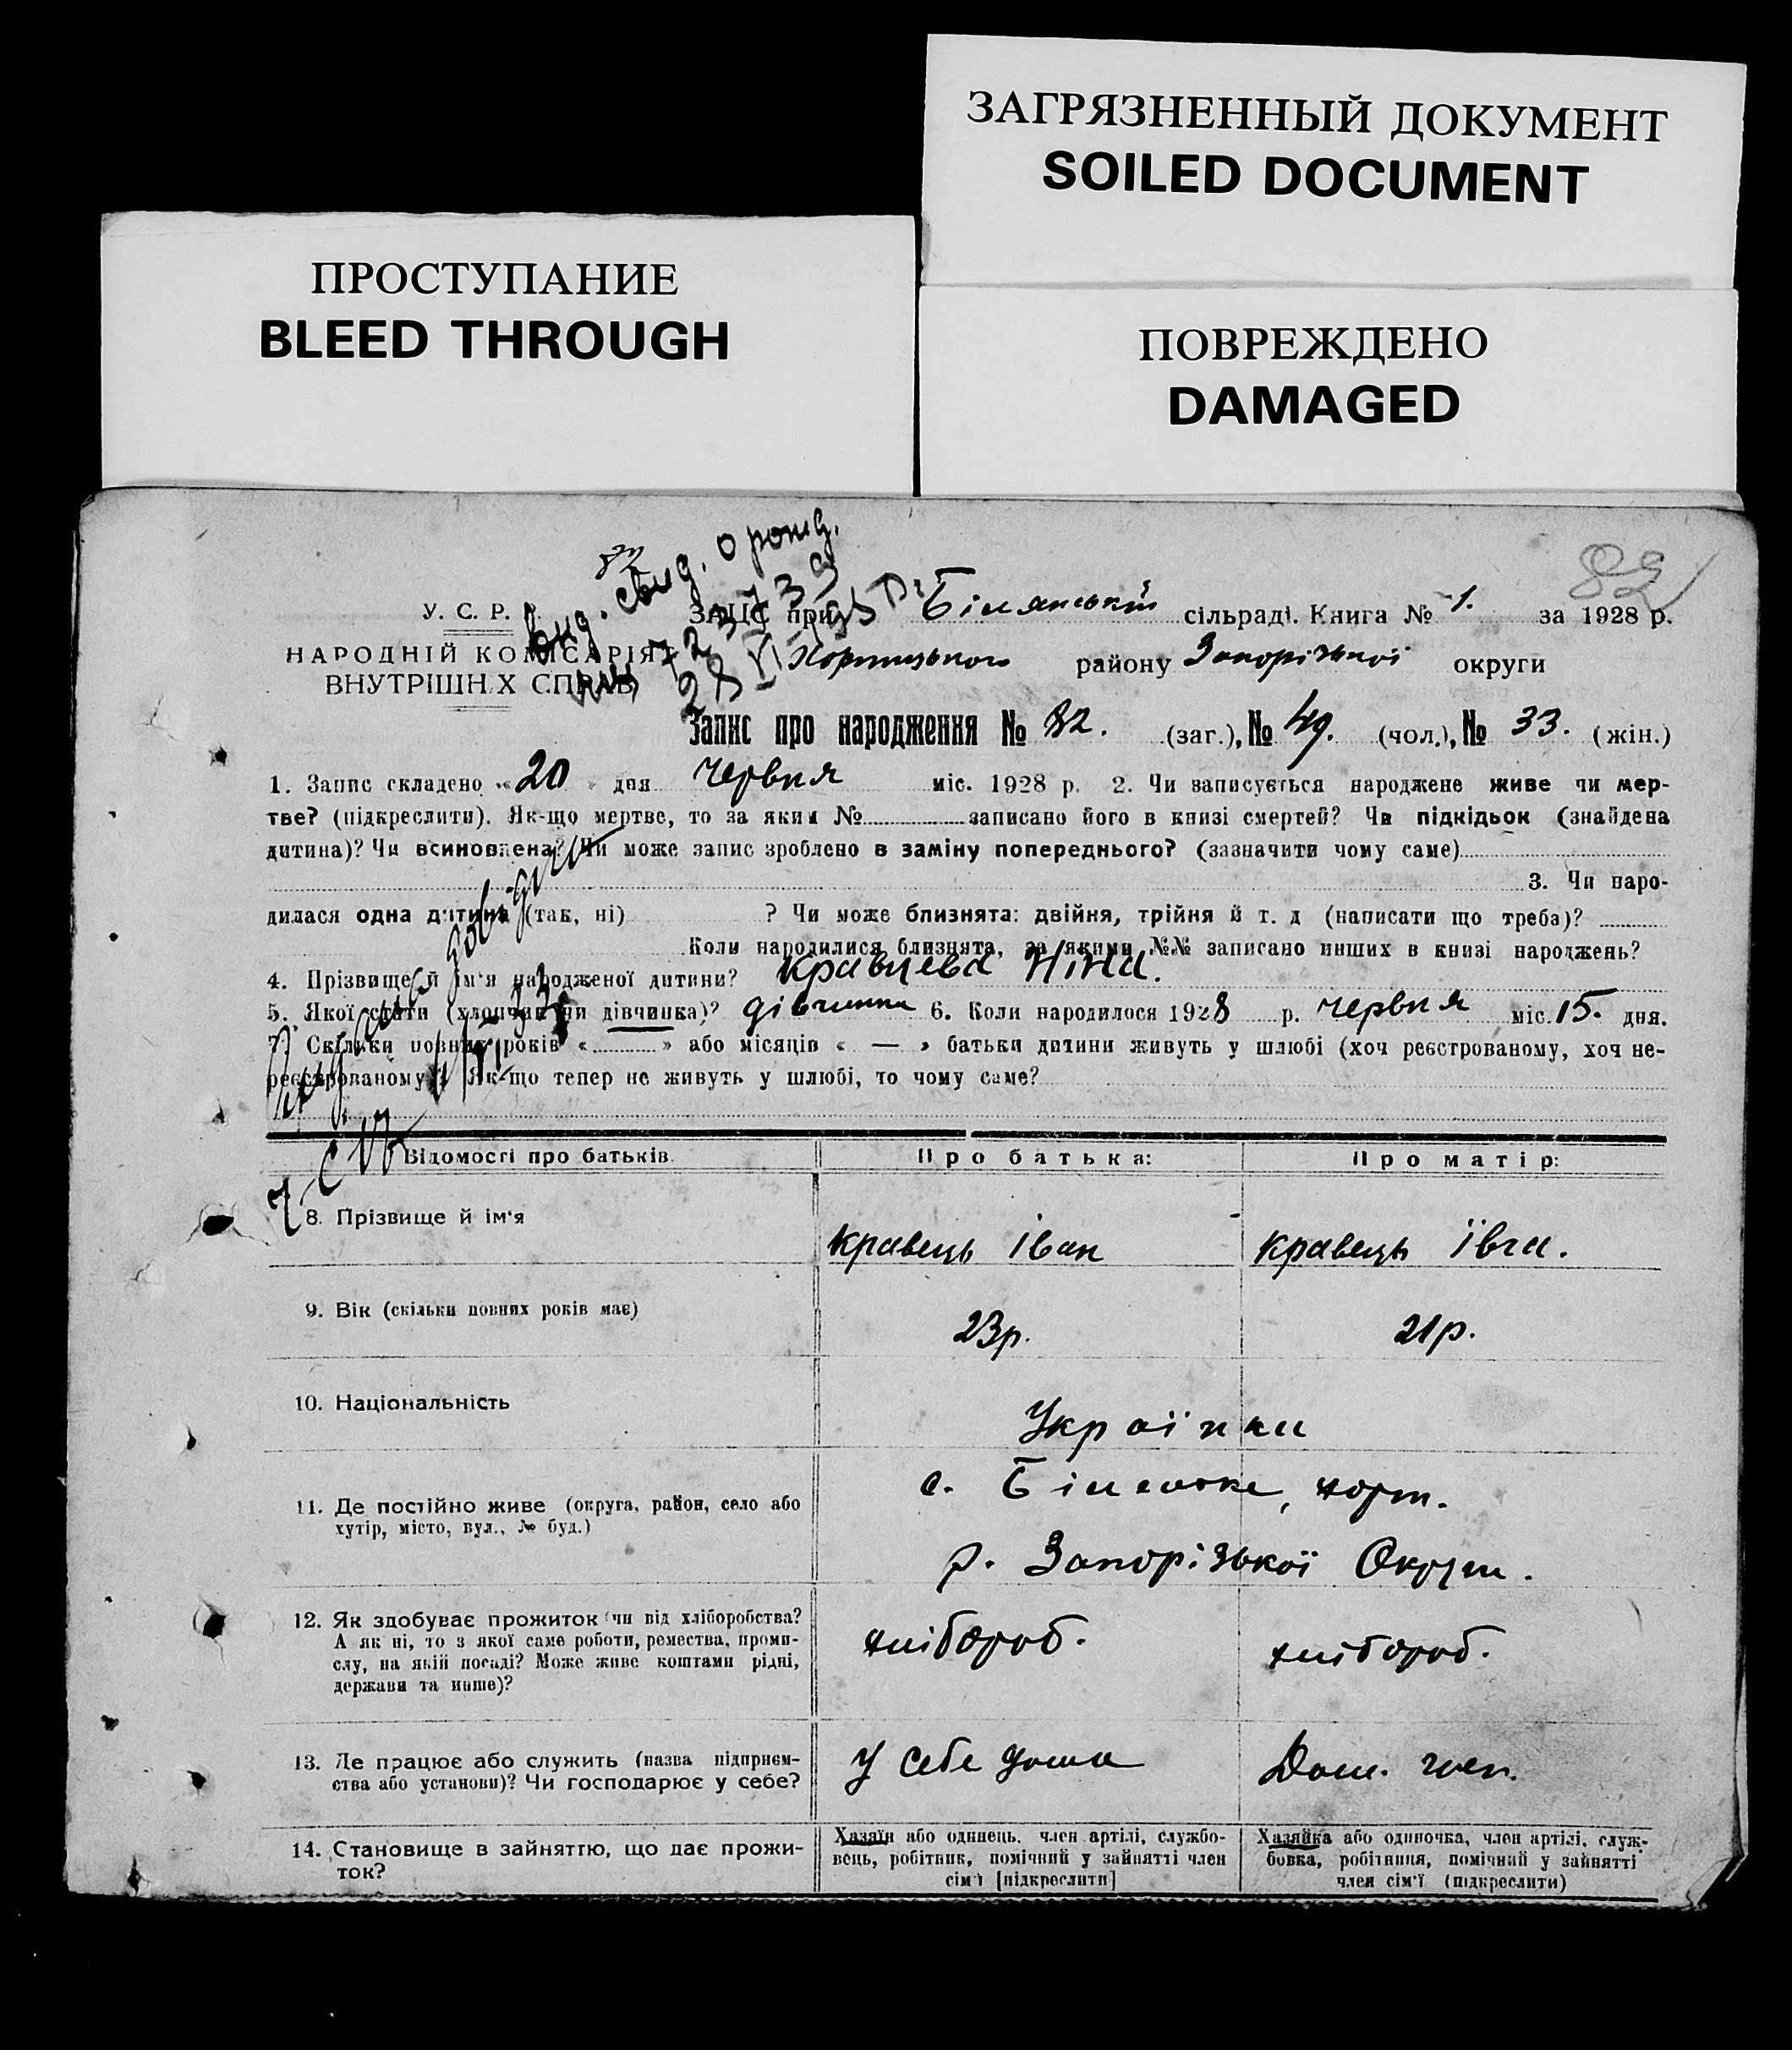 ЗАГРЯЗНЕННЫЙ ДОКУМЕНТ
SOILED DOCUMENT
ПРОСТУПАНИЕ
BLEED THROUGH
ПОВРЕЖДЕНО
DAMAGED
82
Выд. свид. о рожд.
У. С. Р. Р.
НАРОДНІЙ КОМІСАРІЯТ
ВНУТРІШНІХ СПРАВ
ЗАЦС при Білянській сільраді. Книга № 1. за 1928 р.
Хортицького району Запорізької округи
Запис про народження № 82. (заг.), № 49. (чол.), № 33. (жін.)
1. Запис складено «20» дня червня міс. 1928 р. 2. Чи записується народжене живе чи мер-
тве? (підкреслити). Як-що мертве, то за яким № записано його в книзі смертей? Чи підкідьок (знайдена
дитина)? Чи всиновлена? Чи може запис зроблено в заміну попереднього? (зазначити чому саме)
3. Чи наро-
дилася одна дитина (так, ні) ? Чи може близнята: двійня, трійня й т. д (написати що треба)?
Коли народилися близнята, за якими №№ записано инших в книзі народжень?
4. Прізвище й ім'я народженої дитини? Кравцева Ніна.
5. Якої стати (хлопчик чи дівчинка)? дівчинка 6. Коли народилося 1928 р. червня міс. 15. дня.
7. Скільки повних років « » або місяців « — » батьки дитини живуть у шлюбі (хоч реєстрованому, хоч не-
реєстрованому)? Як-що тепер не живуть у шлюбі, то чому саме?
Відомості про батьків Про батька: Про матір:
8. Прізвище й ім'я Кравець Іван Кравець Ївга.
9. Вік (скільки повних років має) 23р. 21р.
10. Національність Українки
11. Де постійно живе (округа, район, село або
хутір, місто, вул., № буд.)
с. Біленьке, Хорт.
р. Запорізької Округи.
12. Як здобуває прожиток (чи від хліборобства?
А як ні, то з якої саме роботи, ремества, проми-
слу, на якій посаді? Може живе коштами рідні,
держави та инше)?
хлібороб. хлібороб.
13. Де працює або служить (назва підприєм-
ства або установи)? Чи господарює у себе?
У себе дома Дом.
14. Становище в зайняттю, що дає прожи-
ток?
Хазяїн або одинець, член артілі, службо-
вець, робітник, помічний у зайнятті член
сім'ї [підкреслити]
Хазяйка або одиночка, член артілі, служ-
бовка, робітниця, помічний у зайнятті
член сім'ї (підкреслити)